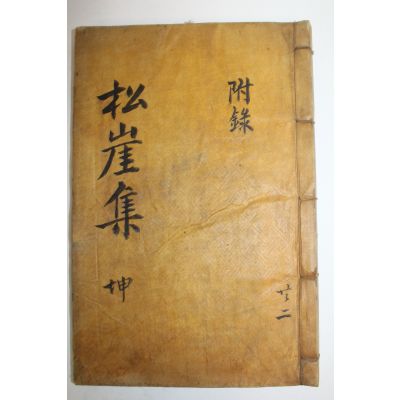 松崖集 坤
附錄
共二